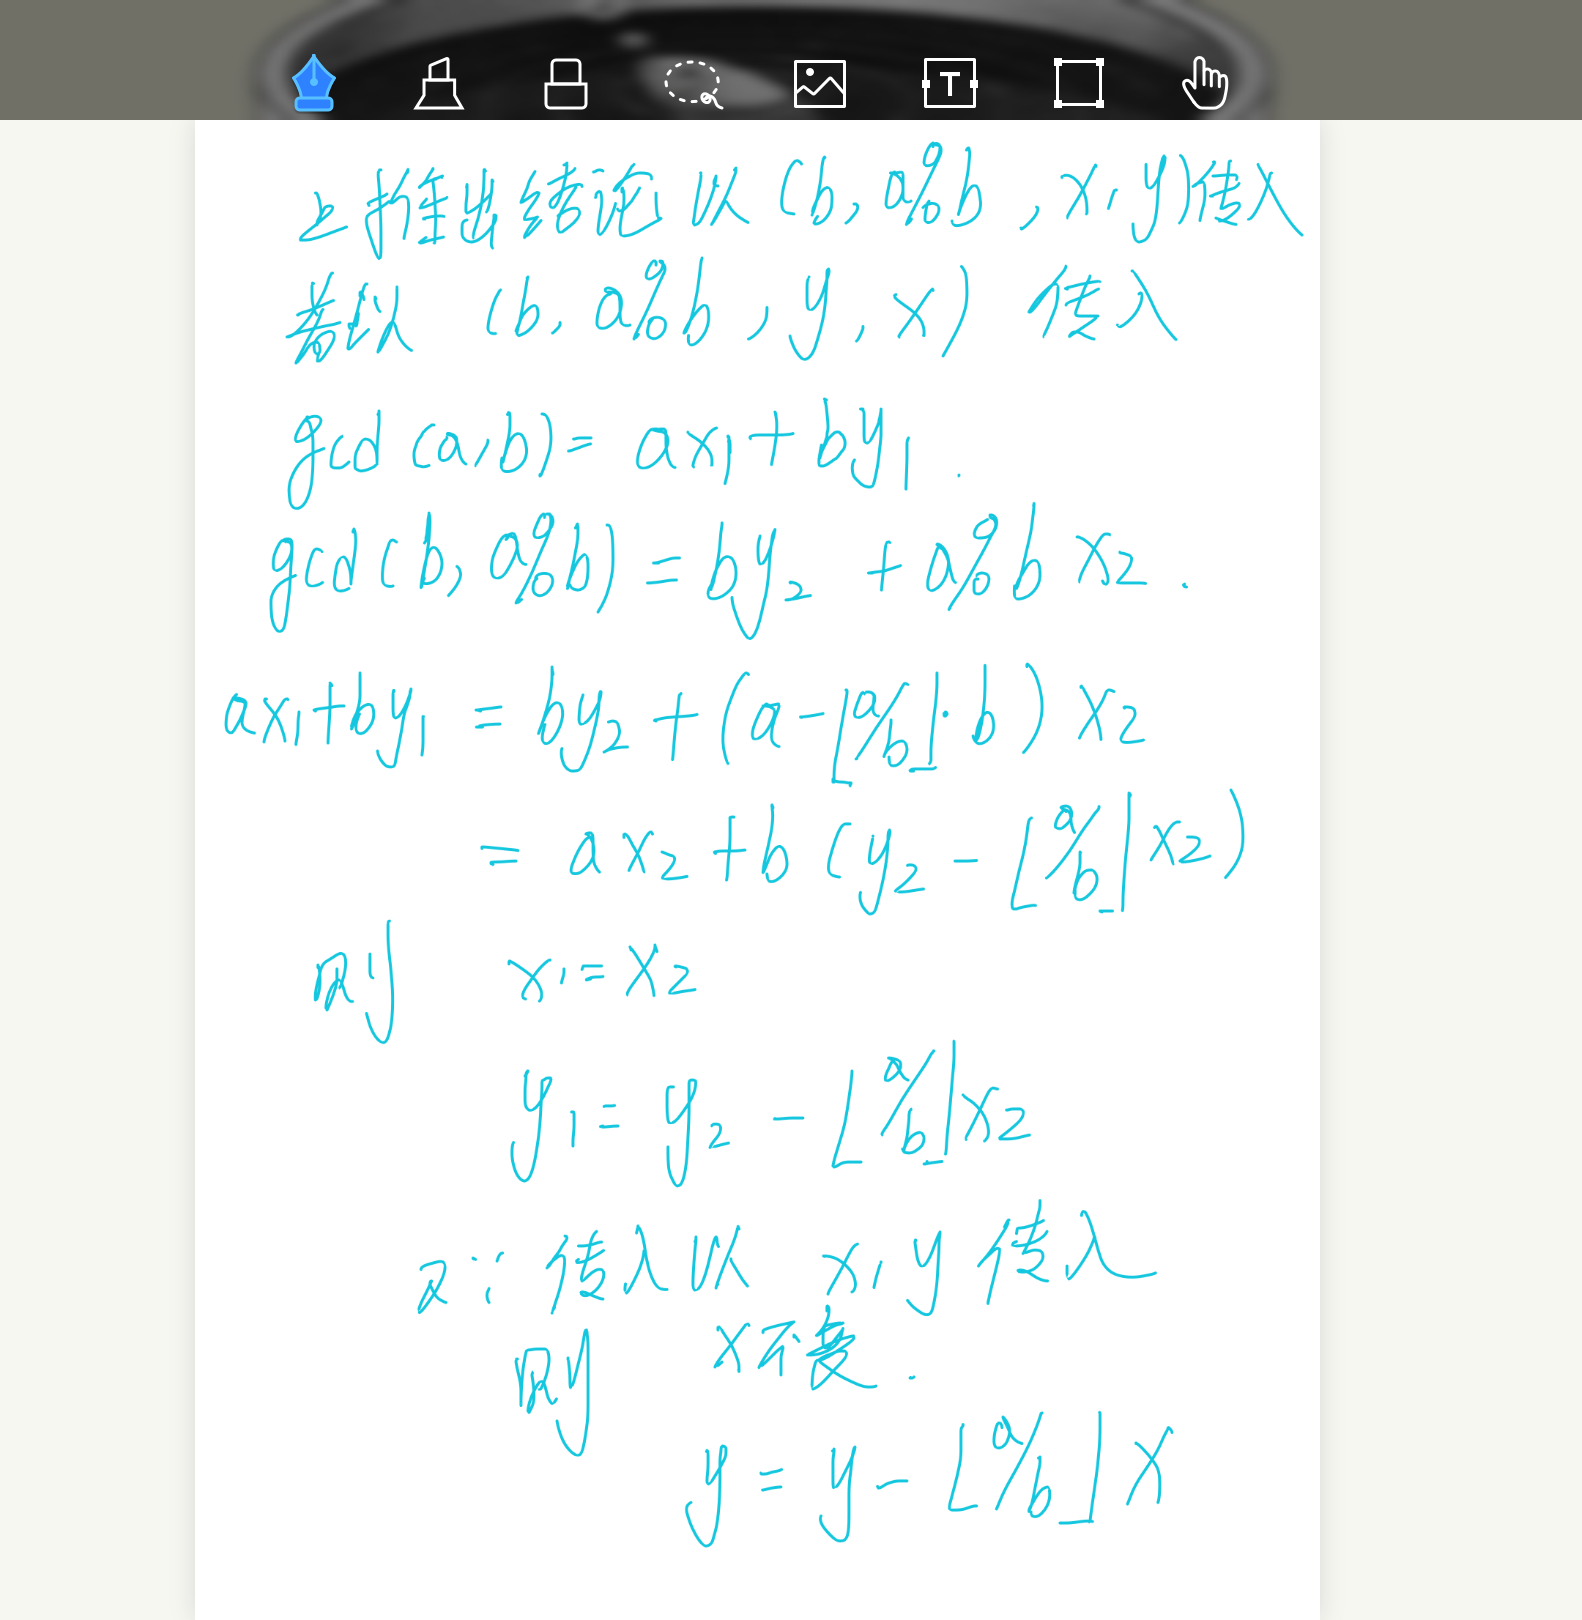 上推出结论以 (b, a%b, x, y)传入
若以 (b, a%b, y, x) 传入
gcd (a,b) = ax₁ + by₁.
gcd (b, a%b) = by₂ + a%b x₂.
ax₁+by₁ = by₂ + (a-⌊a/b⌋·b) x₂
= ax₂ + b (y₂ - ⌊a/b⌋x₂)
则 x₁ = x₂
y₁ = y₂ - ⌊a/b⌋x₂
又∵ 传入以 x, y 传入
则 x不变.
y = y - ⌊a/b⌋x